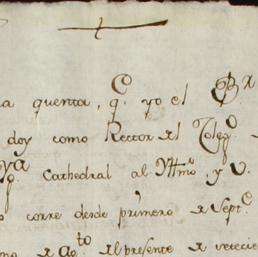 a quenta, q.e yo el B.r
doy como Rector del Coleg.o
Cathedral al Yttmo, y V.
corre desde primero de Sept.e
de Ag.to del presente de setecie